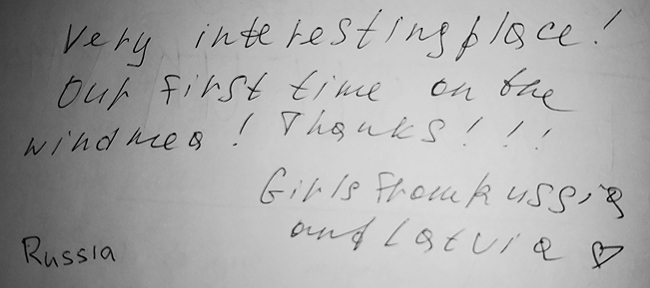 Very interesting place!
Our first time on the
windmea! Thanks!!!
Girls from Russia
and Latvia ♡
Russia